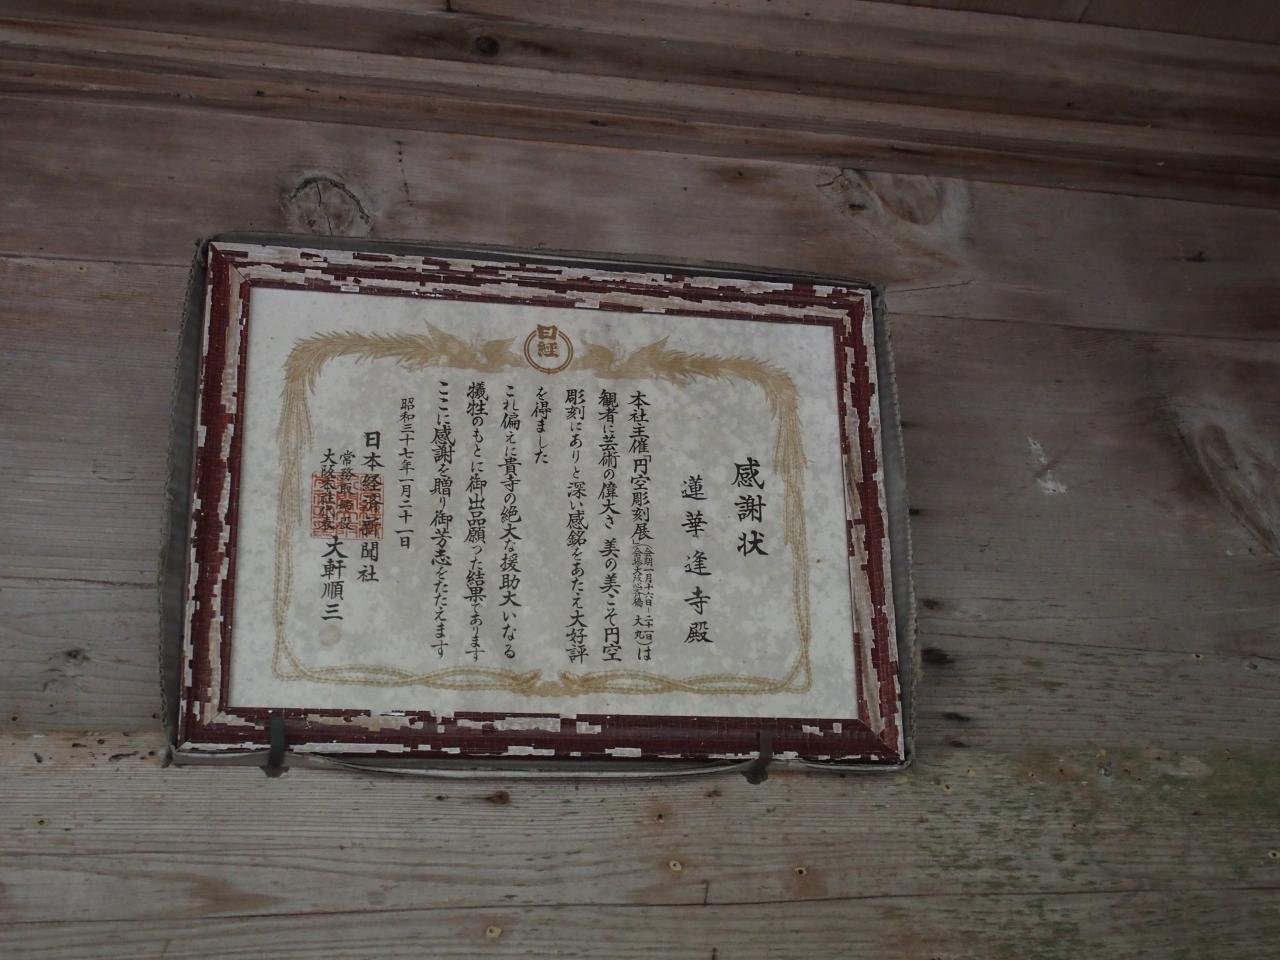 日経
感謝状
蓮華逢寺殿
本社主催「円空彫刻展」(会期一月十六日―二十一日 会場大阪心斎橋 大丸)は
観者に芸術の偉大さ 美の美こそ円空
彫刻にありと深い感銘をあたえ大好評
を得ました
これ偏えに貴寺の絶大な援助大いなる
犠牲のもとに御出品願った結果であります
ここに感謝を贈り御芳志をたたえます
昭和三十七年一月二十一日
日本経済新聞社
常務取締役
大阪本社代表 大軒順三